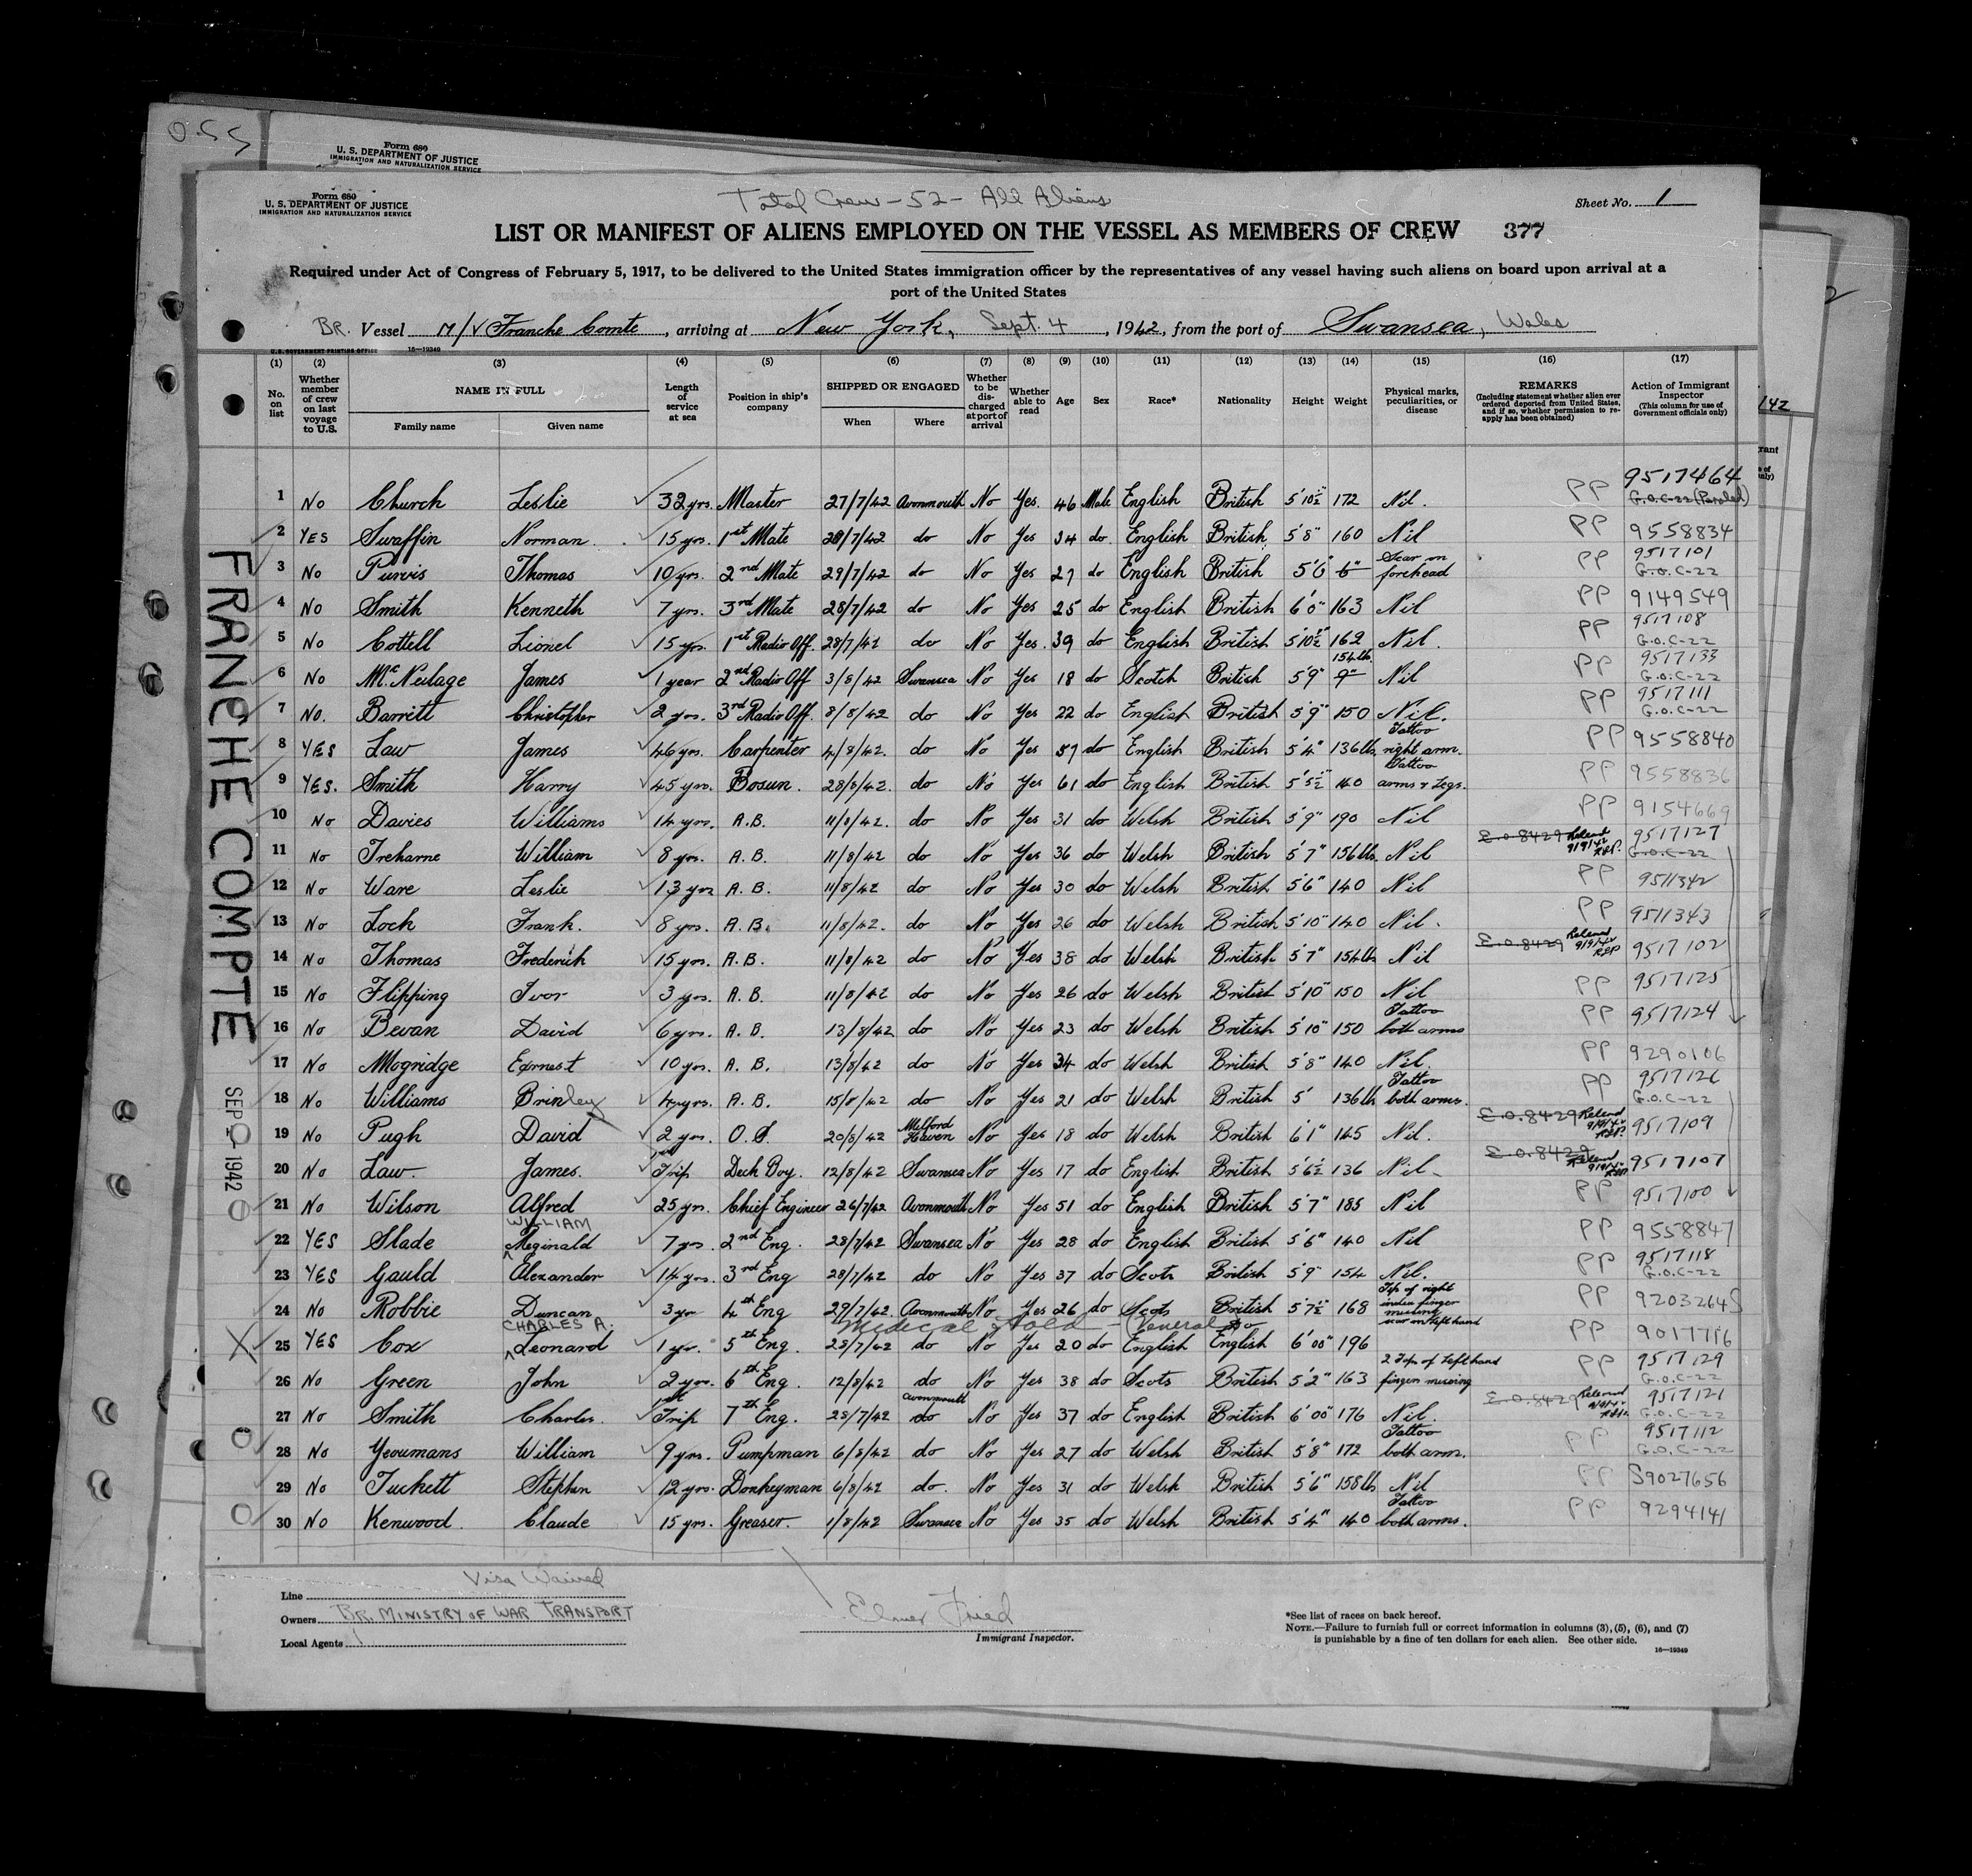 0-55
Form 680
U. S. DEPARTMENT OF JUSTICE
IMMIGRATION AND NATURALIZATION SERVICE
Form 680
U. S. DEPARTMENT OF JUSTICE
IMMIGRATION AND NATURALIZATION SERVICE
Total Crew - 52 - All Aliens
Sheet No. 1
LIST OR MANIFEST OF ALIENS EMPLOYED ON THE VESSEL AS MEMBERS OF CREW 377
Required under Act of Congress of February 5, 1917, to be delivered to the United States immigration officer by the representatives of any vessel having such aliens on board upon arrival at a
port of the United States
BR. Vessel M/V Franche Comte, arriving at New York, Sept. 4, 1942, from the port of Swansea, Wales
U.S. GOVERNMENT PRINTING OFFICE 16—19349
(1) (2) (3) (4) (5) (6) (7) (8) (9) (10) (11) (12) (13) (14) (15) (16) (17)
No. on list
Whether member of crew on last voyage to U.S.
NAME IN FULL
Family name
Given name
Length of service at sea
Position in ship's company
SHIPPED OR ENGAGED
When
Where
Whether to be discharged at port of arrival
Whether able to read
Age
Sex
Race*
Nationality
Height
Weight
Physical marks, peculiarities, or disease
REMARKS
(Including statement whether alien ever ordered deported from United States, and if so, whether permission to reapply has been obtained)
Action of Immigrant Inspector
(This column for use of Government officials only)
1 No Church Leslie 32 yrs. Master 27/7/42 Avonmouth No Yes. 46 Male English British 5'10½" 172 Nil. PP 9517464 G.O.C-22 (Paroled)
2 YES Swaffin Norman 15 yrs. 1st Mate 28/7/42 do No Yes 34 do English British 5'8" 160 Nil PP 9558834
3 No Purvis Thomas 10 yrs. 2nd Mate 29/7/42 do No Yes 27 do English British 5'6 6" Scar on forehead PP 9517101 G.O.C-22
4 No Smith Kenneth 7 yrs. 3rd Mate 28/7/42 do No Yes 25 do English British 6'0" 163 Nil PP 9149549
5 No Cottell Lionel 15 yrs. 1st Radio Off. 28/7/42 do No Yes. 39 do English British 5'10½" 162 Nil. PP 9517108 G.O.C-22
6 No McNeilage James 1 year 2nd Radio Off 3/8/42 Swansea No Yes 18 do Scotch British 5'9" 9" 154 lb. Nil PP 9517133 G.O.C-22
7 NO. Barritt Christopher 2 yrs. 3rd Radio Off. 8/8/42 do No Yes 22 do English British 5'9" 150 Nil. PP 9517111 G.O.C-22
8 YES Law James 46 yrs. Carpenter 4/8/42. do No Yes 59 do English British 5'4" 136 lb. Tattoo right arm. PP 9558840
9 YES. Smith Harry 45 yrs. Bosun. 28/8/42. do No Yes 61 do English British 5'5½" 140 Tattoo arms & Legs. PP 9558836
10 No Davies Williams 14 yrs. A.B. 11/8/42. do No Yes 31 do Welsh British 5'9" 190 Nil PP 9154669
11 No Treharne William 8 yrs. A.B. 11/8/42 do No Yes 36 do Welsh British 5'7" 156 lb. Nil E.O.8429 9/9/42 9517127 G.O.C-22
12 No Ware Leslie 13 yrs A.B. 11/8/42 do No Yes 30 do Welsh British 5'6" 140 Nil PP 9511342
13 No Lock Frank. 8 yrs. A.B. 11/8/42. do No Yes 26 do Welsh British 5'10" 140 Nil. PP 9511343
14 No Thomas Frederick 15 yrs. A.B. 11/8/42 do No Yes 38 do Welsh British 5'7" 154 lb Nil E.O.8429 9/9/42 9517102
15 No Flipping Ivor 3 yrs. A.B. 11/8/42 do No Yes 26 do Welsh British 5'10" 150 Nil PP 9517125
16 No Bevan David 6 yrs. A.B. 13/8/42 do No Yes 23 do Welsh British 5'10" 150 Tattoo both arms PP 9517124
17 No Mogridge Earnest 10 yrs. A.B. 13/8/42 do No Yes 34 do Welsh British 5'8" 140 Nil. PP 9290106
18 No Williams Brinley 4 yrs. A.B. 15/8/42 do No Yes 21 do Welsh British 5' 136 lb Tattoo both arms. PP 9517126 G.O.C-22
19 No Pugh David 2 yrs. O.S. 20/8/42 Milford Haven No Yes 18 do Welsh British 6'1" 145 Nil. E.O.8429 9517109
20 No Law James. 1st Trip Deck Boy. 12/8/42 Swansea No Yes 17 do English British 5'6½ 136 Nil E.O.8429 9517107
21 No Wilson Alfred 25 yrs. Chief Engineer 26/7/42 Avonmouth No Yes 51 do English British 5'7" 185 Nil PP 9517100
22 YES Slade WILLIAM Reginald 7 yrs. 2nd Eng. 28/7/42 Swansea No Yes 28 do English British 5'6" 140 Nil PP 9558847
23 YES Gauld Alexander 14 yrs. 3rd Eng 28/7/42 do No Yes 37 do Scots British 5'9" 154 Nil. PP 9517118 G.O.C-22
24 No Robbie Duncan 3 yr 4th Eng 29/7/42. Avonmouth No Yes 26 do Scots British 5'7½" 168 Tip of right index finger missing scar on left hand PP 9203264S
Medical Hold - Venereal
25 YES Cox CHARLES A. Leonard 1 yr. 5th Eng. 28/7/42 do No Yes 20 do English English 6'00" 196 PP 9017716
26 No Green John 2 yrs. 6th Eng. 12/8/42 do No Yes 38 do Scots British 5'2" 163 2 Tops of Left hand fingers missing PP 9517129 G.O.C-22
27 No Smith Charles. 1st Trip 7th Eng. 28/7/42 Avonmouth do No Yes 37 do English British 6'00" 176 Nil. E.O.8429 9517121 G.O.C-22
28 No Yeoumans William 9 yrs. Pumpman 6/8/42 do No Yes 27 do Welsh British 5'8" 172 Tattoo both arm. PP 9517112 G.O.C-22
29 No Tuckett Stephen 12 yrs. Donkeyman 6/8/42 do. No Yes 31 do Welsh British 5'6" 158 lb Nil PP S9027656
30 No Kenwood. Claude 15 yrs. Greaser. 1/8/42 Swansea No Yes 35 do Welsh British 5'4" 140 Tattoo both arms. PP 9294141
FRANCHE COMPTE
SEP 1942
142
Visa Waived
Line
Owners BR. MINISTRY OF WAR TRANSPORT
Local Agents
Elmer Fried
Immigrant Inspector.
*See list of races on back hereof.
NOTE.—Failure to furnish full or correct information in columns (3), (5), (6), and (7)
is punishable by a fine of ten dollars for each alien. See other side.
16—19349